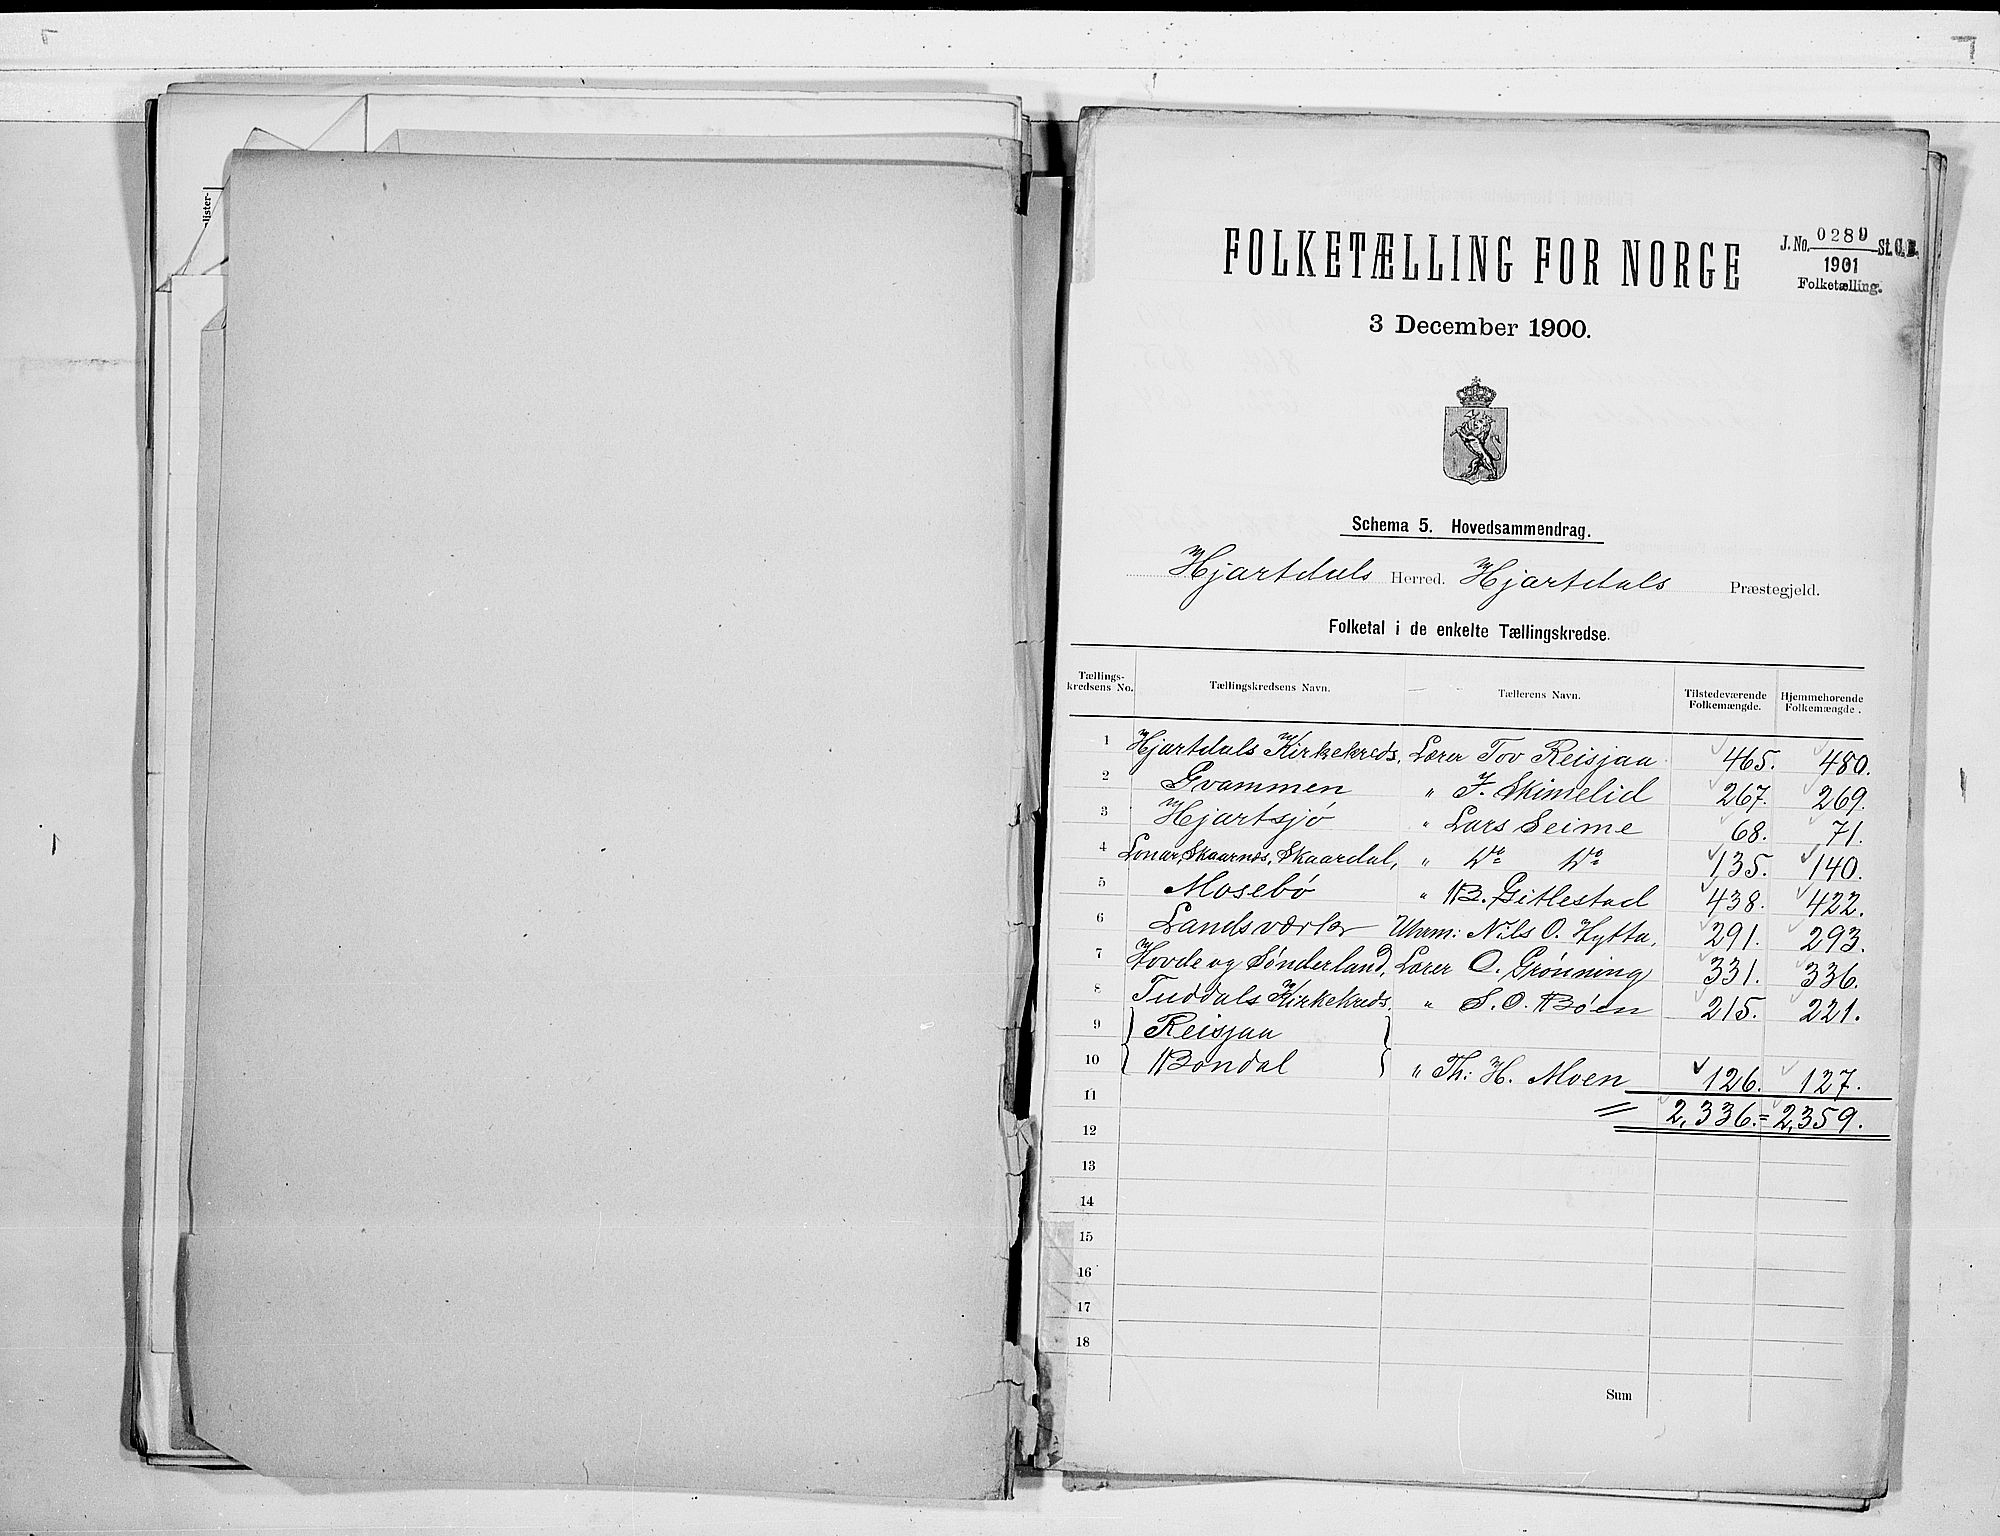 lister-
FOLKETÆLLING FOR NORGE
J. No. 0289 St. C. B.
1901
Folketælling.
3 December 1900.
Schema 5. Hovedsammendrag.
Hjartdals Herred. Hjartdals Præstegjeld.
Folketal i de enkelte Tællingskredse.
Tællings-kredsens No. Tællingskredsens Navn. Tællerens Navn. Tilstedeværende Folkemængde. Hjemmehørende Folkemængde.
1 Hjartdals Kirkekreds, Lærer Tov Reisjaa 465. 480.
2 Gvammen " J. Skimelid 267. 269.
3 Hjartsjø " Lars Seime 68. 71.
4 Lonar, Skaarnes, Skaardal, " Do Do 135. 140.
5 Mosebø " B. Gitlestad 438. 422.
6 Landsværk Uhrm: Nils O. Hytta, 291. 293.
7 Hovde og Sønderland, Lærer O. Grønning 331. 336.
8 Tuddals Kirkekreds. " S. O. Bøen 215. 221.
9 } Reisjaa }
10 { Bondal } " Th: H. Moen 126. 127.
11 = 2,336. = 2,359.
12
13
14
15
16
17
18
Sum